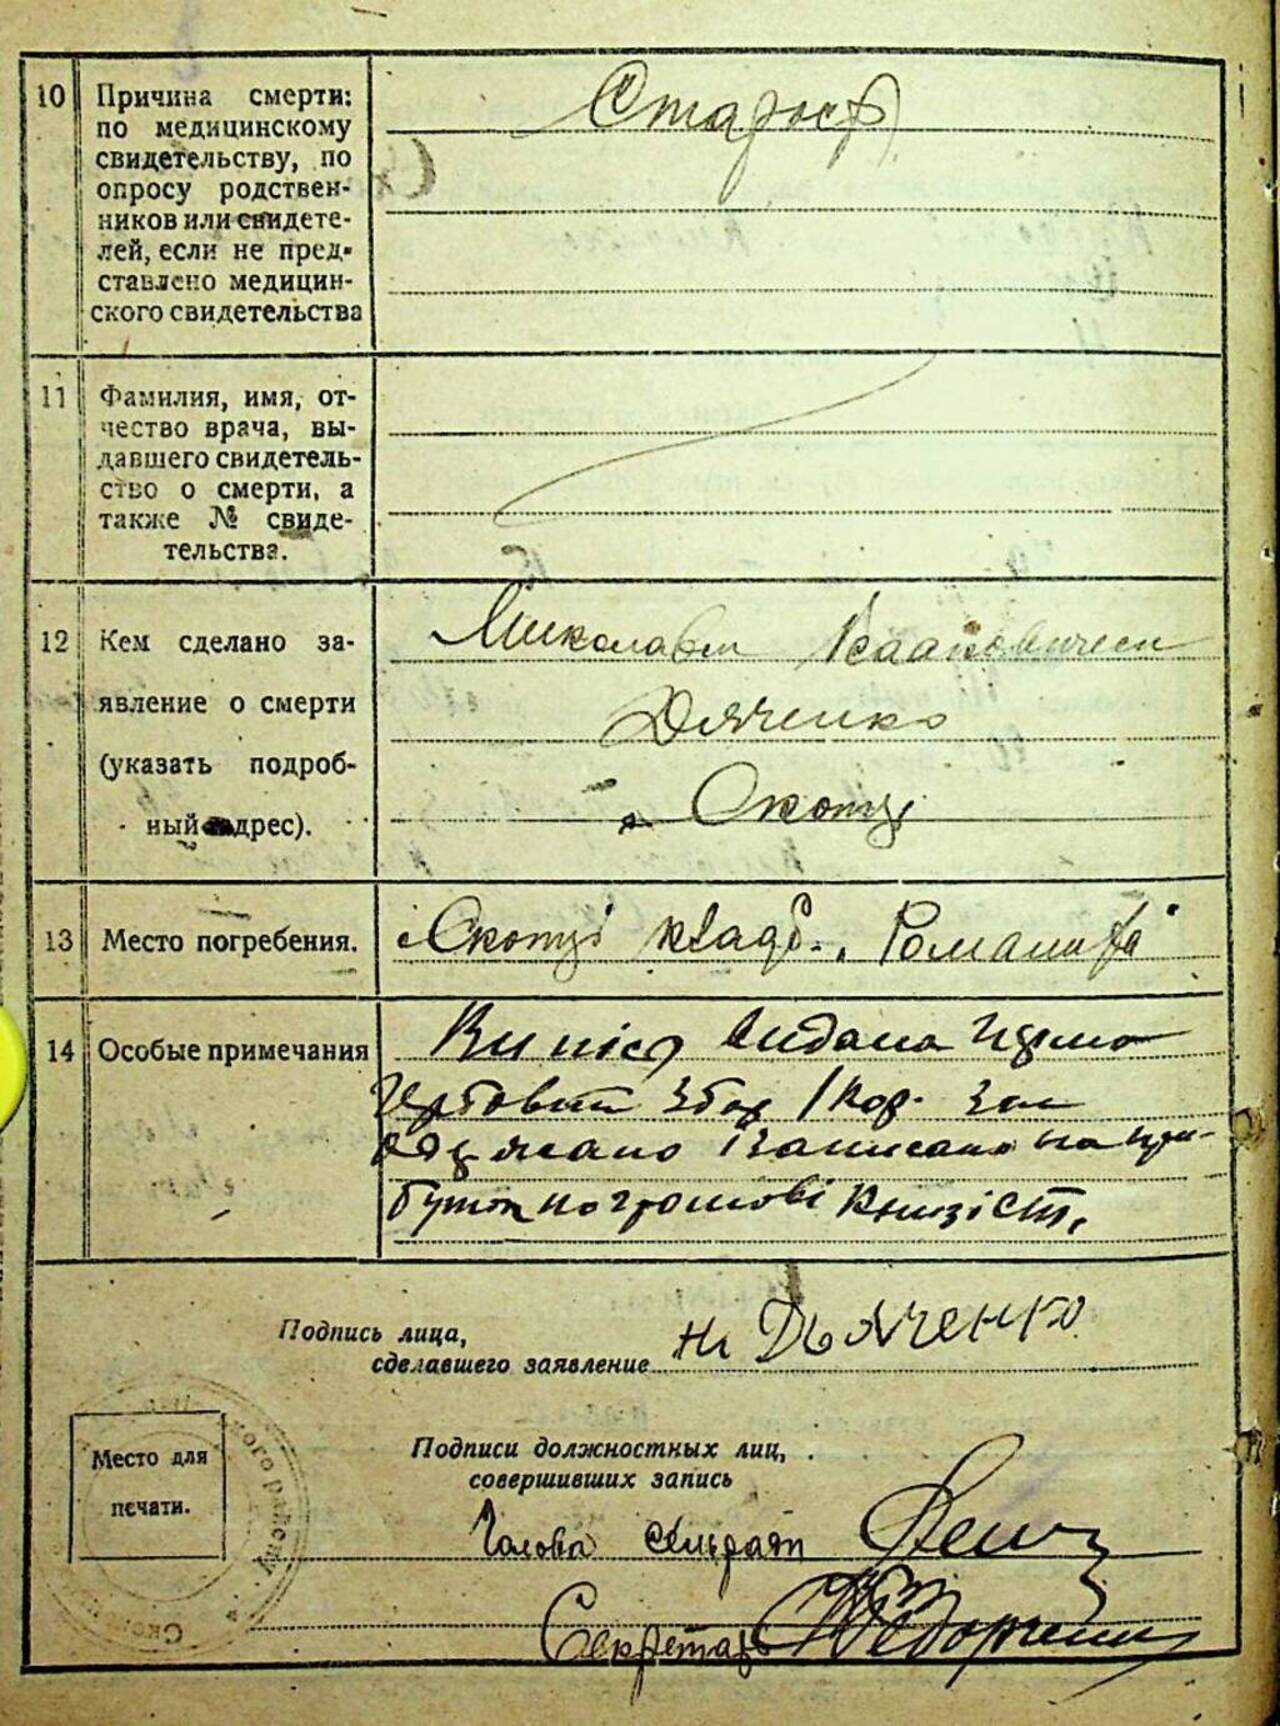 10
Причина смерти:
по медицинскому
свидетельству, по
опросу родствен-
ников или свидете-
лей, если не пред-
ставлено медицин-
ского свидетельства
Старость
11
Фамилия, имя, от-
чество врача, вы-
давшего свидетель-
ство о смерти, а
также № свиде-
тельства.
12
Кем сделано за-
явление о смерти
(указать подроб-
ный адрес).
Миколаем Исааковичем
Дяченко
Скопці
13
Место погребения.
Скопці кладб.
14
Особые примечания
Випись видана
Гербовий збор 1 кар.
одержано і записано на при-
буток по грошові книзі
Подпись лица,
сделавшего заявление
Дьяченко
Место для
печати.
Подписи должностных лиц,
совершивших запись
Голова сільради
Секретарь
ського району